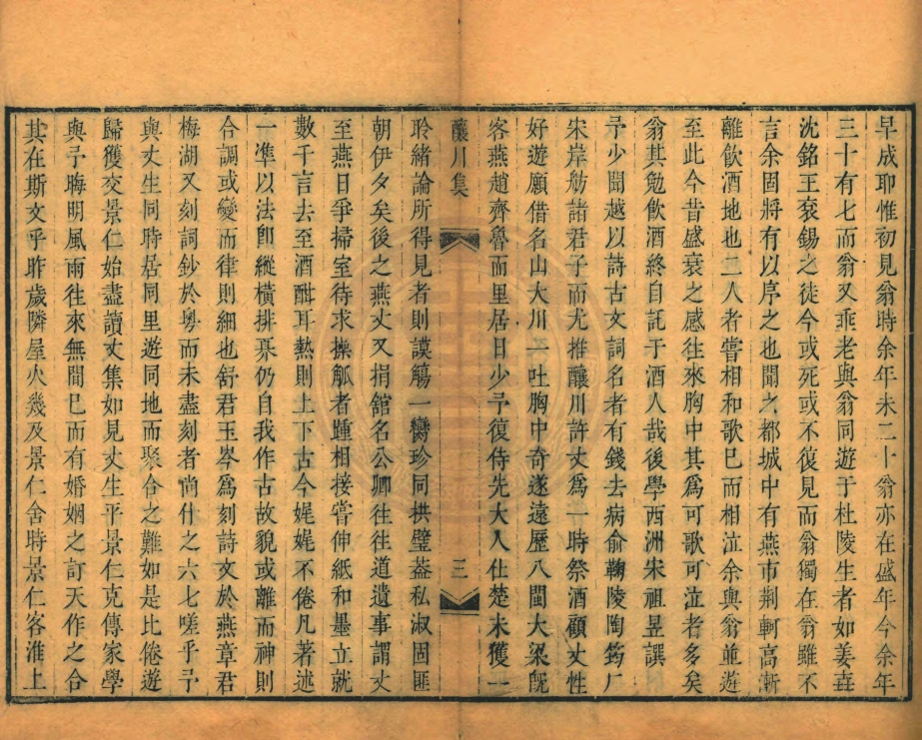 早成耶惟初見翁時余年未二十翁亦在盛年今余年
三十有七而翁又垂老與翁同遊于杜陵生者如姜垚
沈銘王袞錫之徒今或死或不復見而翁獨在翁雖不
言余固將有以序之也聞之都城中有燕市荆軻高漸
離飲酒地也二人者嘗相和歌已而相泣余與翁並遊
至此今昔盛衰之感往來胸中其爲可歌可泣者多矣
翁其勉飲酒終自託于酒人哉後學西洲宋祖昱譔
予少聞越以詩古文詞名者有錢去病俞鞠陵陶筠厂
宋岸舫諸君子而尤推釀川許丈爲一時祭酒顧丈性
好遊願借名山大川一吐胸中奇遂遠歷八閩大梁旣
客燕趙齊魯而里居日少予復侍先大人仕楚未獲一
釀川集
三
聆緒論所得見者則謨觴一臠珍同拱璧葢私淑固匪
朝伊夕矣後之燕丈又捐舘名公卿往往道遺事謂丈
至燕日爭掃室待求操觚者踵相接嘗伸紙和墨立就
數千言去至酒酣耳熱則上下古今娓娓不倦凡著述
一凖以法卽縱橫排奡仍自我作古故貌或離而神則
合調或變而律則細也舒君玉岑爲刻詩文於燕章君
梅湖又刻詞鈔於粤而未盡刻者尚什之六七嗟乎予
與丈生同時居同里遊同地而聚合之難如是比倦遊
歸獲交景仁始盡讀丈集如見丈生平景仁克傳家學
與予晦明風雨往來無間已而有婚姻之訂天作之合
其在斯文乎昨歲隣屋火幾及景仁舍時景仁客淮上